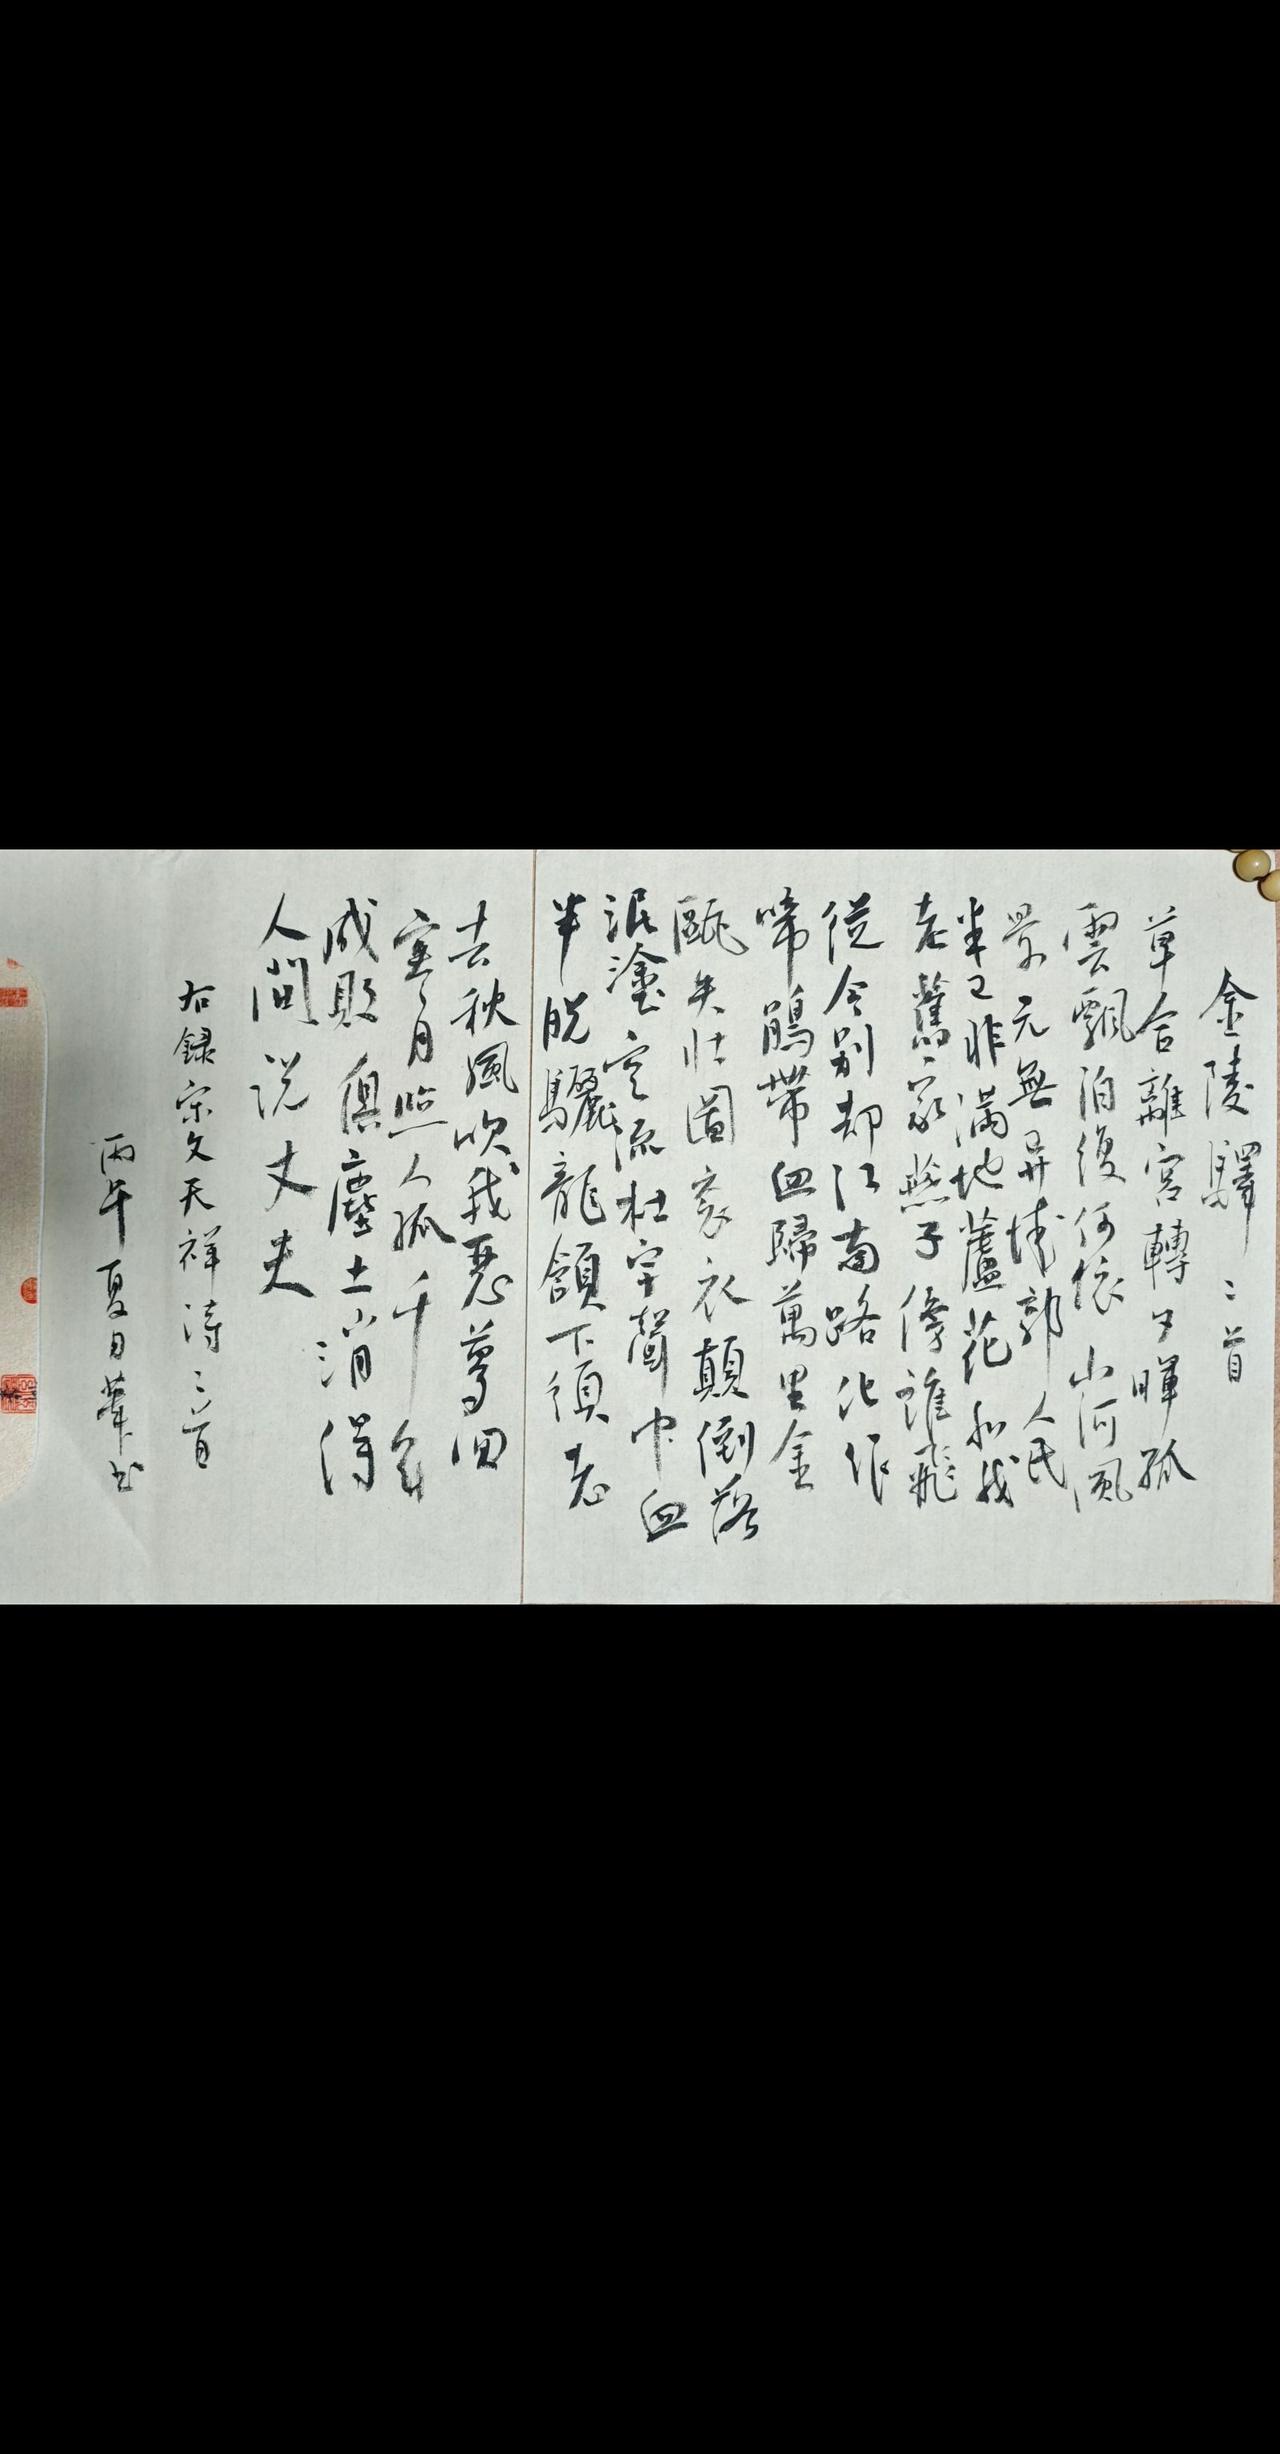 金陵驛 二首
草合離宮轉夕暉孤
雲飄泊復何依 山河風
景元無異城郭人民
半已非滿地蘆花和我
老舊家燕子傍誰飛
從今别却江南路化作
啼鵑帶血歸萬里金
甌失壯圖袞衣顛倒落
泥塗空流杜宇聲中血
半脱驪龍頷下須老
去秋風吹我惡夢回
寒月照人孤千年
成敗俱塵土消得
人間说丈夫
右録宋文天祥詩二首
丙午夏日 书